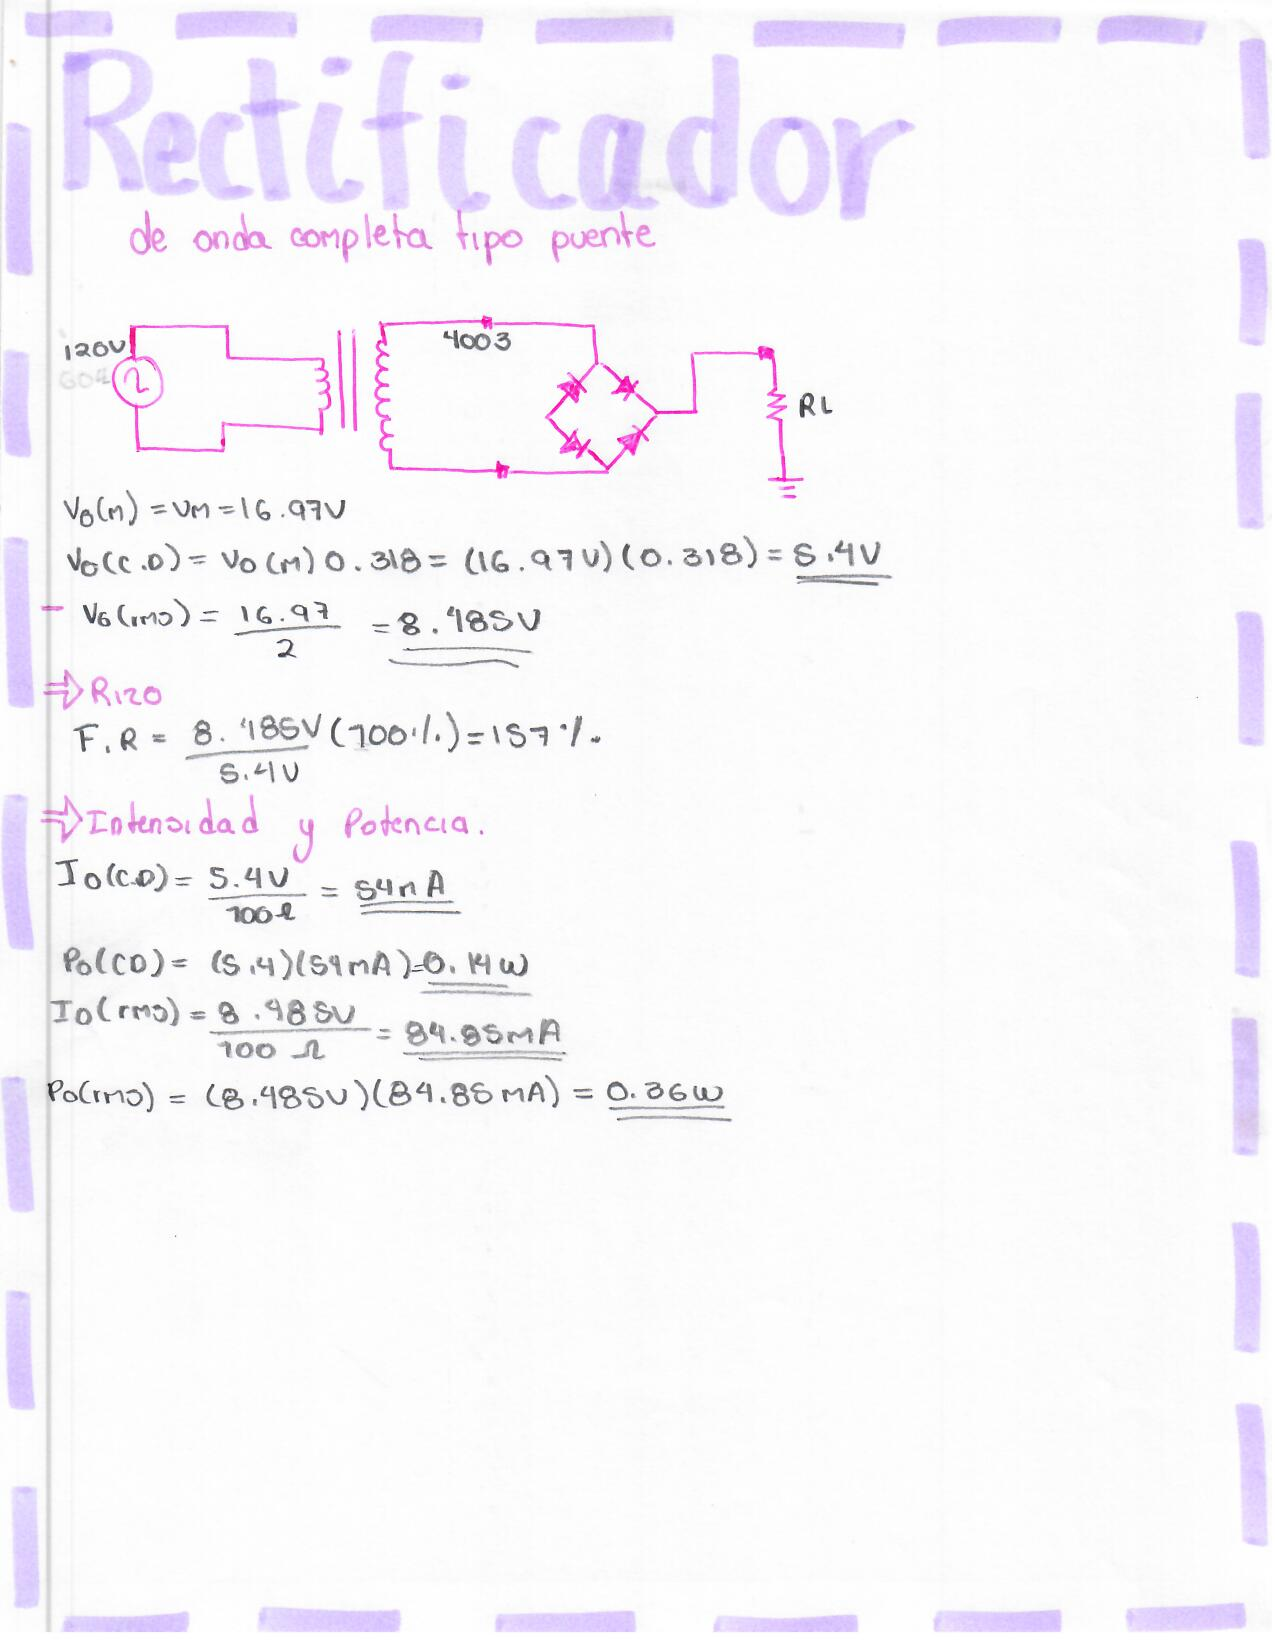 Rectificador
de onda completa tipo puente
120V
60Hz
4003
RL
Vo(m) = Vm = 16.97V
Vo(C.D) = Vo(m) 0.318 = (16.97V)(0.318) = 5.4V
- Vo(rms) = 16.97 / 2 = 8.485V
⇒ Rizo
F.R = 8.485V / 5.4V (100%) = 157%.
⇒ Intensidad y Potencia.
Io(C.D) = 5.4V / 100Ω = 54mA
Po(CD) = (5.4)(54mA) = 0.14W
Io(rms) = 8.485V / 100 Ω = 84.85mA
Po(rms) = (8.485V)(84.85mA) = 0.36W